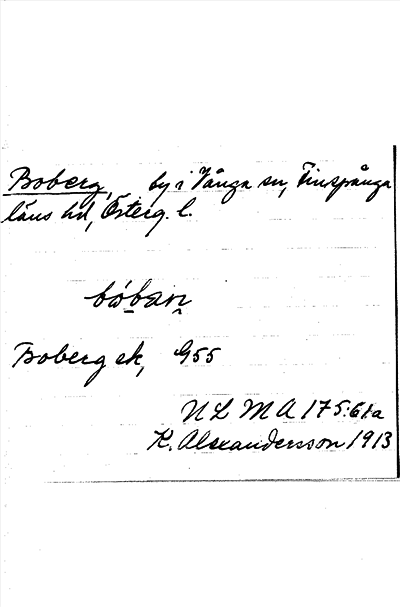 Boberg, by i Vånga sn, Finspånga
läns hd, Österg. l.
bóban
Boberg ek, G55
ULMA 175:61a
K. Alexandersson 1913